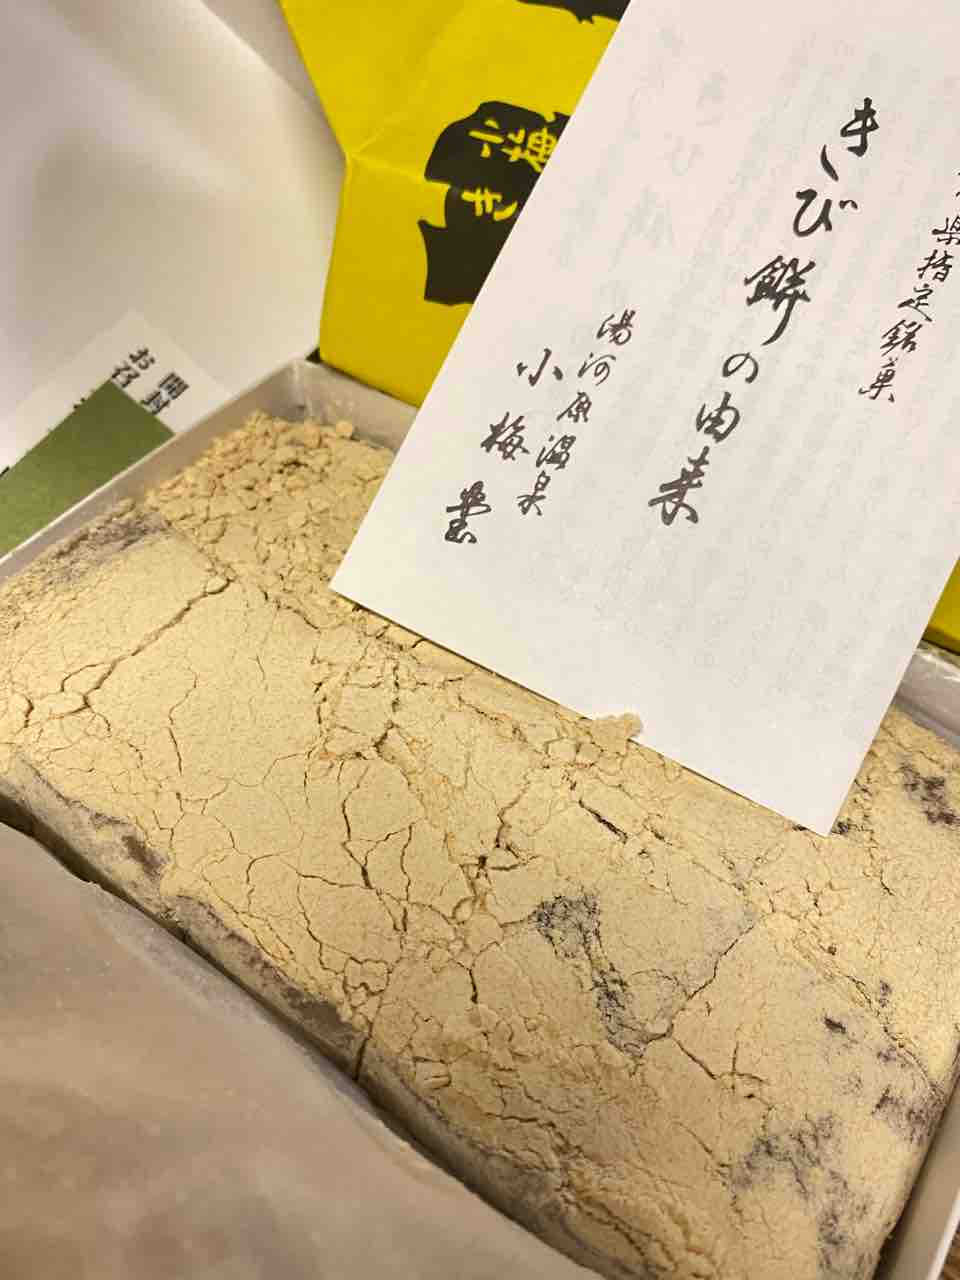 県指定銘菓
きび餅の由来
湯河原温泉
小梅堂
小梅
き
開封
お召